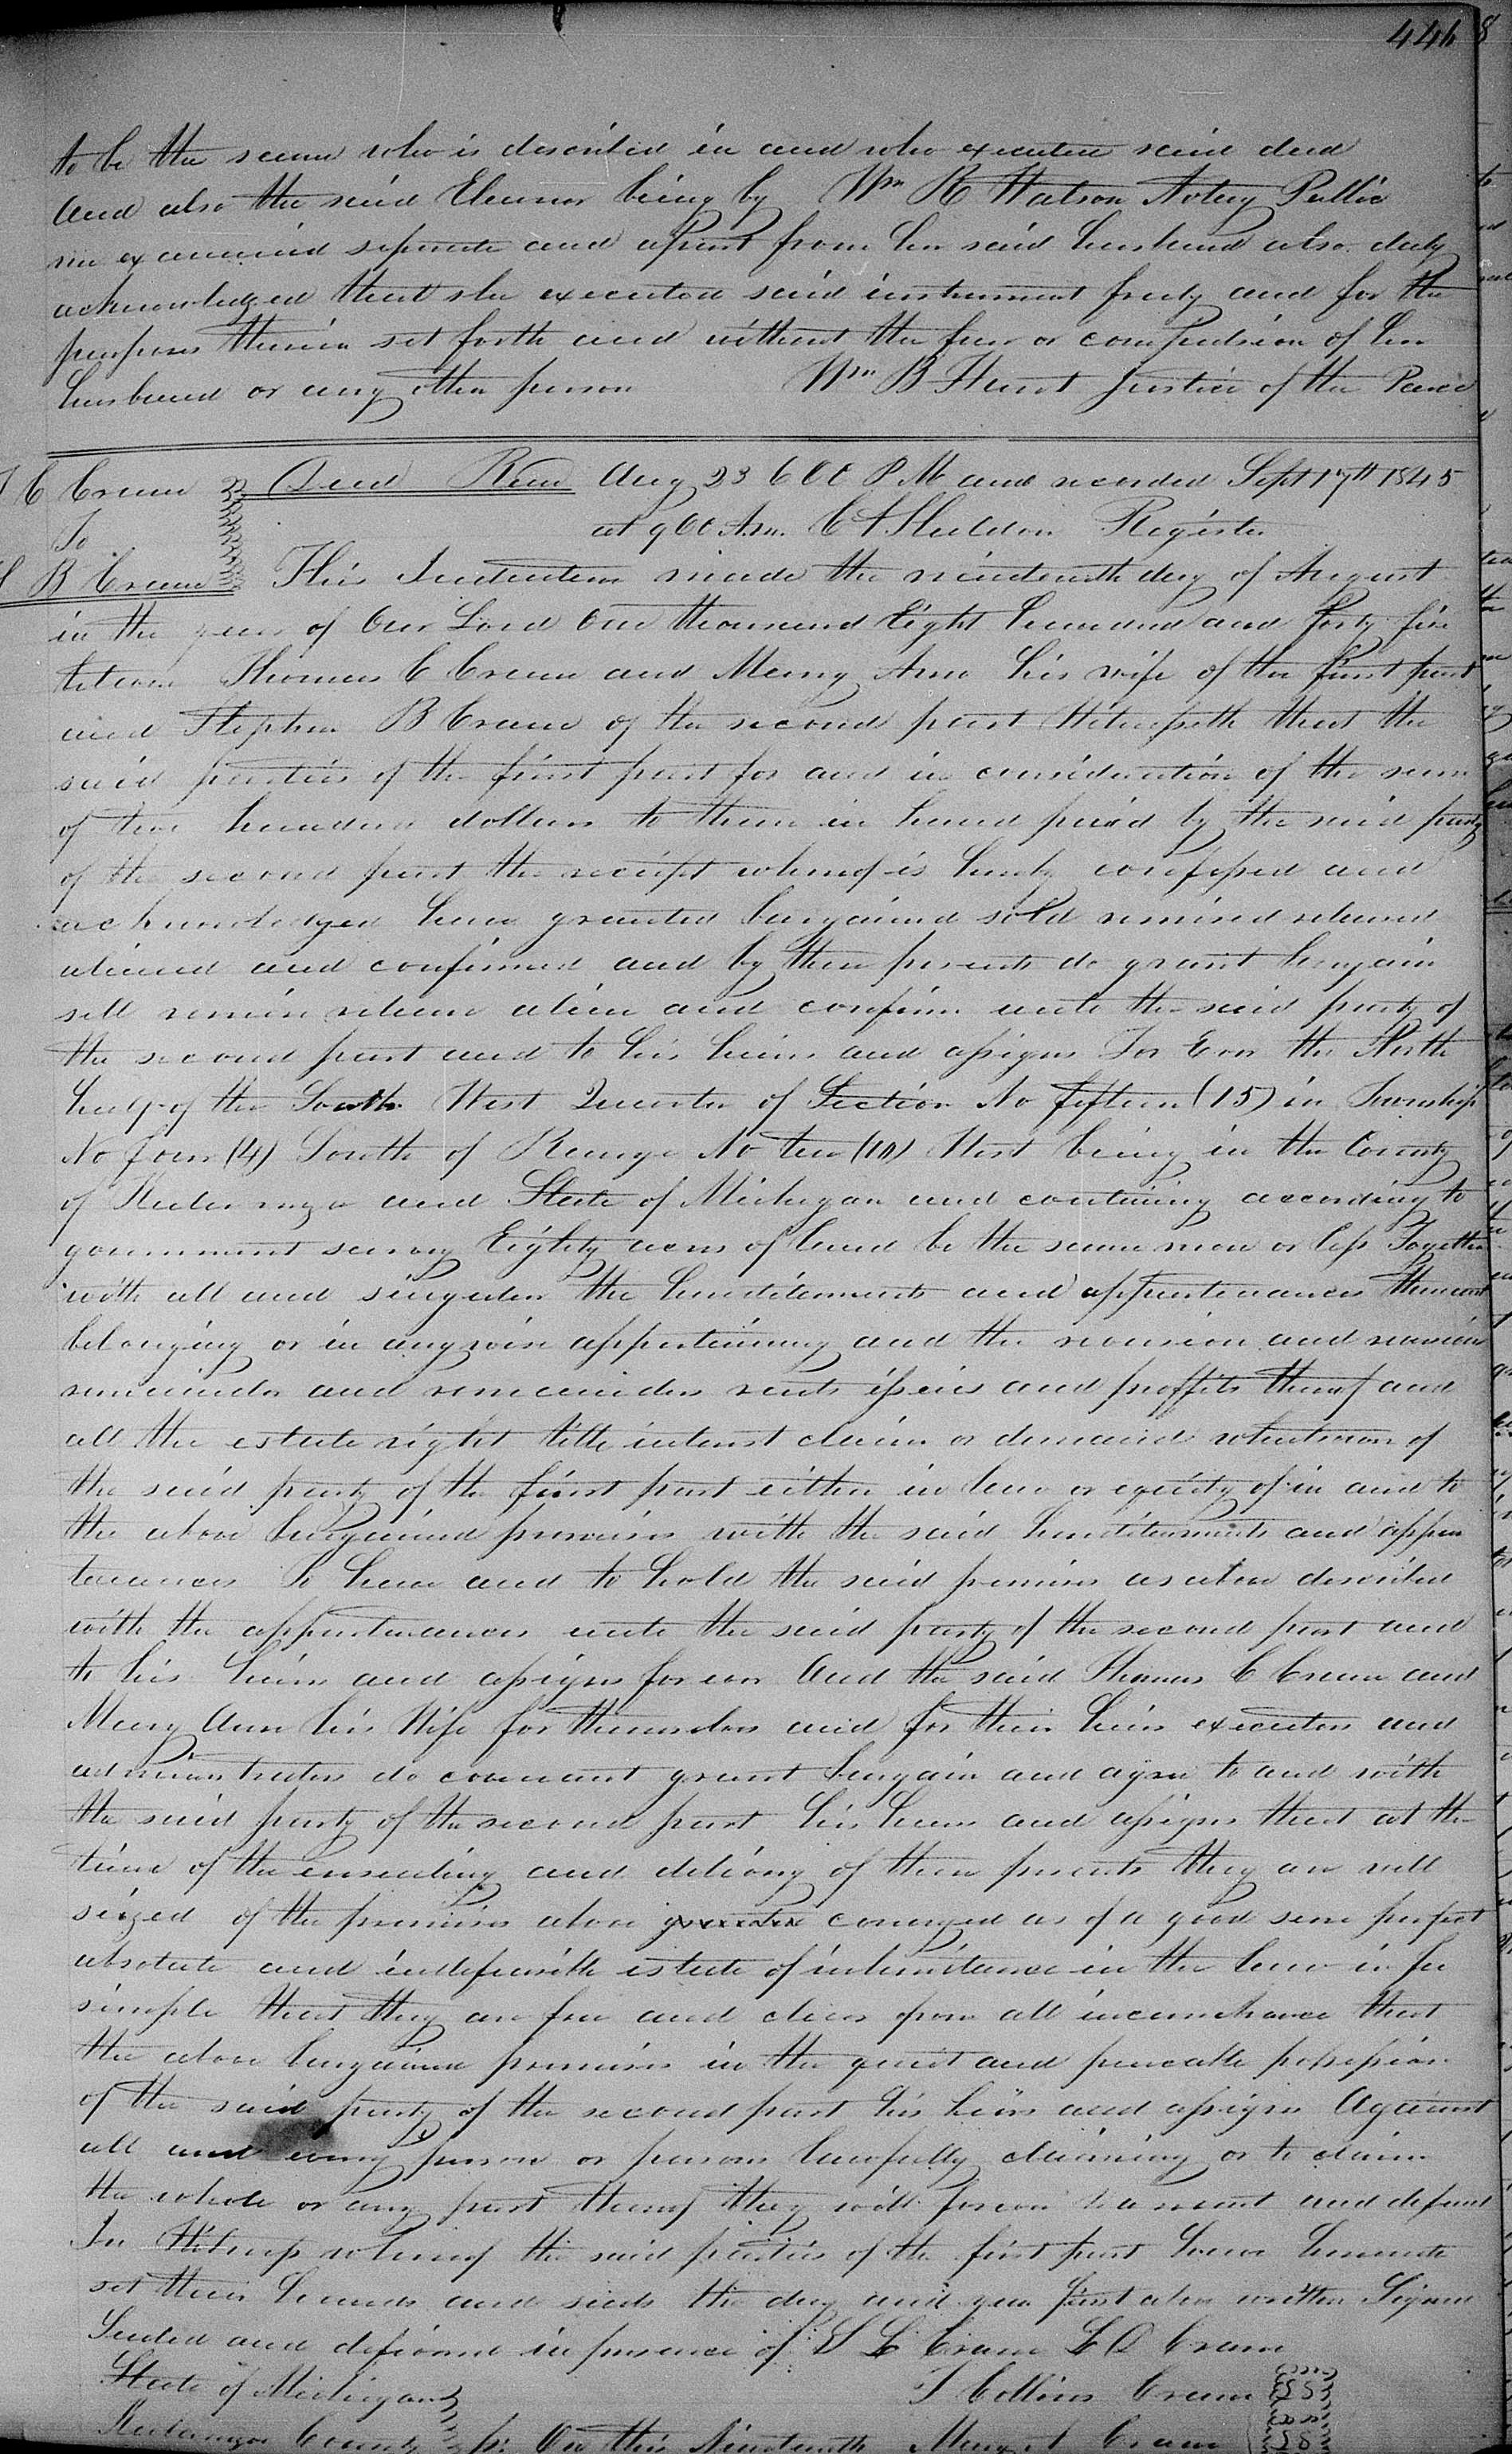 446
to be the same who is described in and who executed said deed
And also the said Eleanor being by Wm R Watson Notary Public
me examined seperate and apart from her said husband also duly
acknowledged that she executed said instrument freely and for the
purposes therein set forth and without the fear or compulsion of her
husband or any other person Wm B Hunt Justice of the Peace
T C Crane Deed Recd Aug 23 6 OC P.M and recorded Sept 17th 1845
To at 9 OC A.m. Register
S B Crane This Indenture made the nineteenth day of August
in the year of Our Lord One thousand Eight hundred and forty five
between Thomas C Crane and Mary Ann his wife of the first part
and Stephen B Crane of the second part Witnesseth that the
said parties of the first part for and in consideration of the sum
of two hundred dollars to them in hand paid by the said party
of the second part the receipt whereof is hereby confessed and
acknowledged have granted bargained sold remised released
aliened and confirmed and by these presents do grant bargain
sell remise release alien and confirm unto the said party of
the second part and to his heirs and assigns For Ever the North
half of the South West Quarter of Section No fifteen (15) in Township
No four (4) South of Range No ten (10) West being in the County
of Kalamazoo and State of Michigan and containing according to
government survey Eighty acres of land be the same more or less Together
with all and singular the hereditaments and appurtenances thereunto
belonging or in anywise appertaining and the reversion and reversions
remainder and remainders rents issues and proffits thereof and
all the estate right title interest claim or demand whatsoever of
the said party of the first part either in law or equity of in and to
the above bargained premises with the said hereditaments and appur
tenances To have and to hold the said premises as above described
with the appurtenances unto the said party of the second part and
to his heirs and assigns for ever And the said Thomas C Crane and
Mary Ann his Wife for themselves and for their heirs executors and
administrators do covenant grant bargain and agree to and with
the said party of the second part his heirs and assigns that at the
time of the ensealing and delivery of these presents they are well
seized of the premises above granted conveyed as of a good sure perfect
absolute and indefeasible estate of inheritance in the law in fee
simple that they are free and clear from all incumbrance that
the above bargained premises in the quiet and peaceable possession
of the said party of the second part his heirs and assigns Against
all and every person or persons lawfully claiming or to claim
the whole or any part thereof they will forever warrant and defend
In Witness whereof the said parties of the first part have hereunto
set their hands and seals the day and year first above written Signed
Sealed and delivered in presence of S L Crane L D Crane
State of Michigan T Collins Crane LS
Kalamazoo County ss: On this Nineteenth Mary A Crane LS